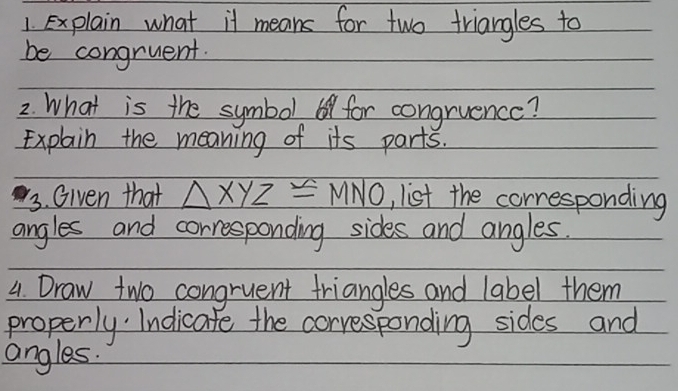 1. Explain what it means for two triangles to
be congruent.
2. What is the symbol for congruence?
Explain the meaning of its parts.
3. Given that △XYZ ≅ MNO, list the corresponding
angles and corresponding sides and angles.
4. Draw two congruent triangles and label them
properly. Indicate the corresponding sides and
angles.